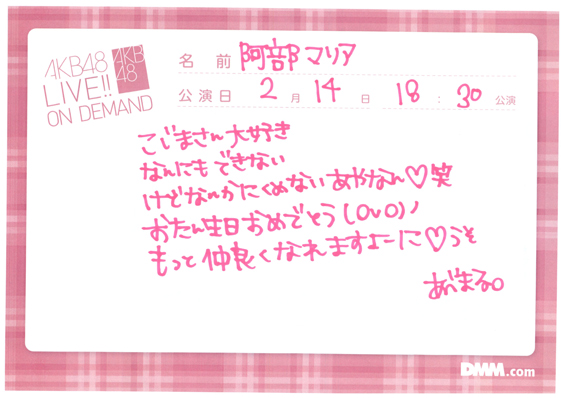 AKB48
LIVE!!
ON DEMAND
AKB
48
名 前 阿部マリア
公演日 2 月 14 日 18 : 30 公演
こじまさん大好き
なんにもできない
けどなんかにくめないあやなん♡笑
おたん生日おめでとう(OvO)ノ
もっと仲良くなれますよーに♡うそ
あべまる。
DMM.com